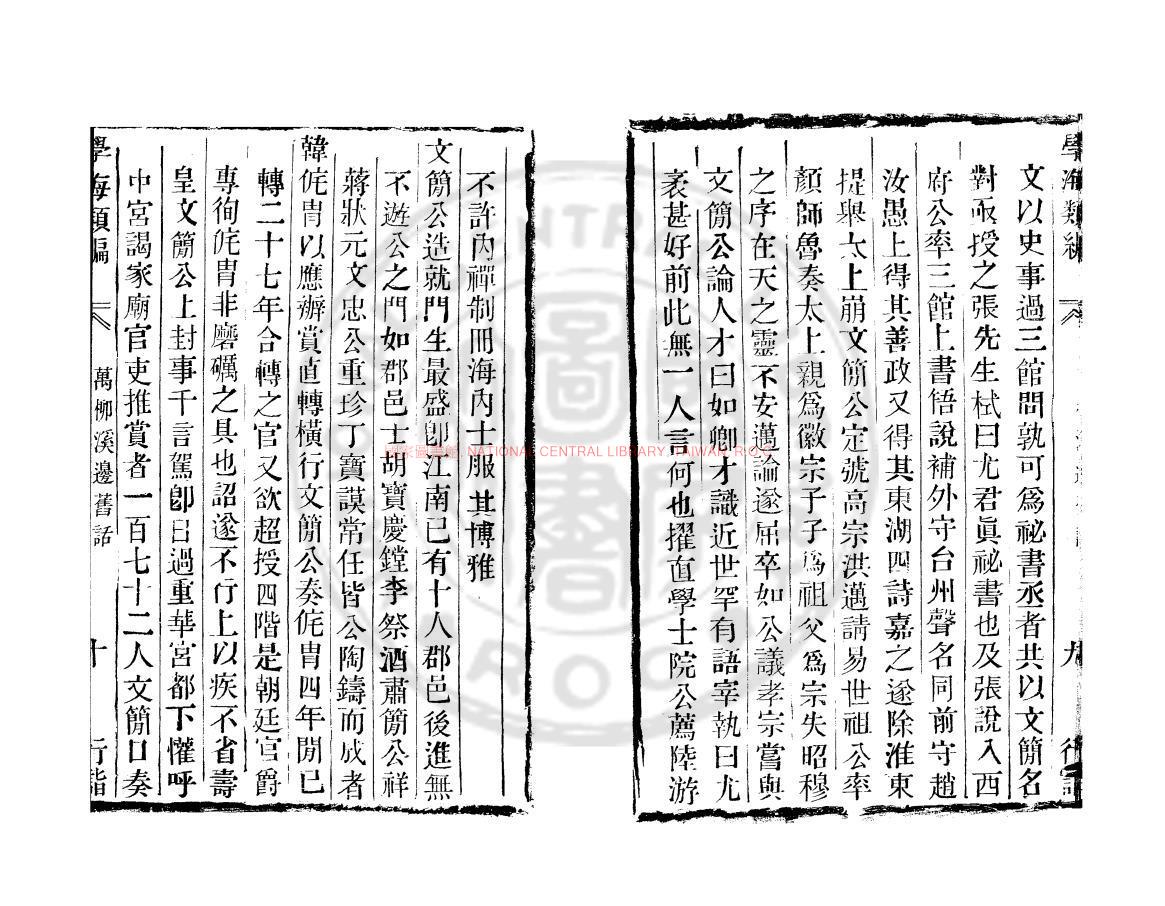 學海類編
九
文以史事過三館問孰可爲祕書丞者共以文簡名
對亟授之張先生栻曰尤君眞祕書也及張說入西
府公率三館上書悟說補外守台州聲名同前守趙
汝愚上得其善政又得其東湖四詩嘉之遂除淮東
提舉太上崩文簡公定號高宗洪邁請易世祖公率
顏師魯奏太上親爲徽宗子子爲祖父爲宗失昭穆
之序在天之靈不安邁論遂屈卒如公議孝宗嘗與
文簡公論人才曰如卿才識近世罕有語宰執曰尤
袤甚好前此無一人言何也擢直學士院公薦陸游
不許內禪制冊海內士服其博雅
文簡公造就門生最盛卽江南已有十人郡邑後進無
不遊公之門如郡邑士胡寶慶鏜李祭酒肅簡公祥
蔣狀元文忠公重珍丁寶謨常任皆公陶鑄而成者
韓侂胄以應辦賞直轉橫行文簡公奏侂胄四年閒已
轉二十七年合轉之官又欲超授四階是朝廷官爵
專徇侂胄非磨礪之具也詔遂不行上以疾不省壽
皇文簡公上封事千言駕卽日過重華宮都下懽呼
中宮謁家廟官吏推賞者一百七十二人文簡口奏
學海類編
萬柳溪邊舊話
十
國家圖書館, NATIONAL CENTRAL LIBRARY, TAIWAN, R.O.C.